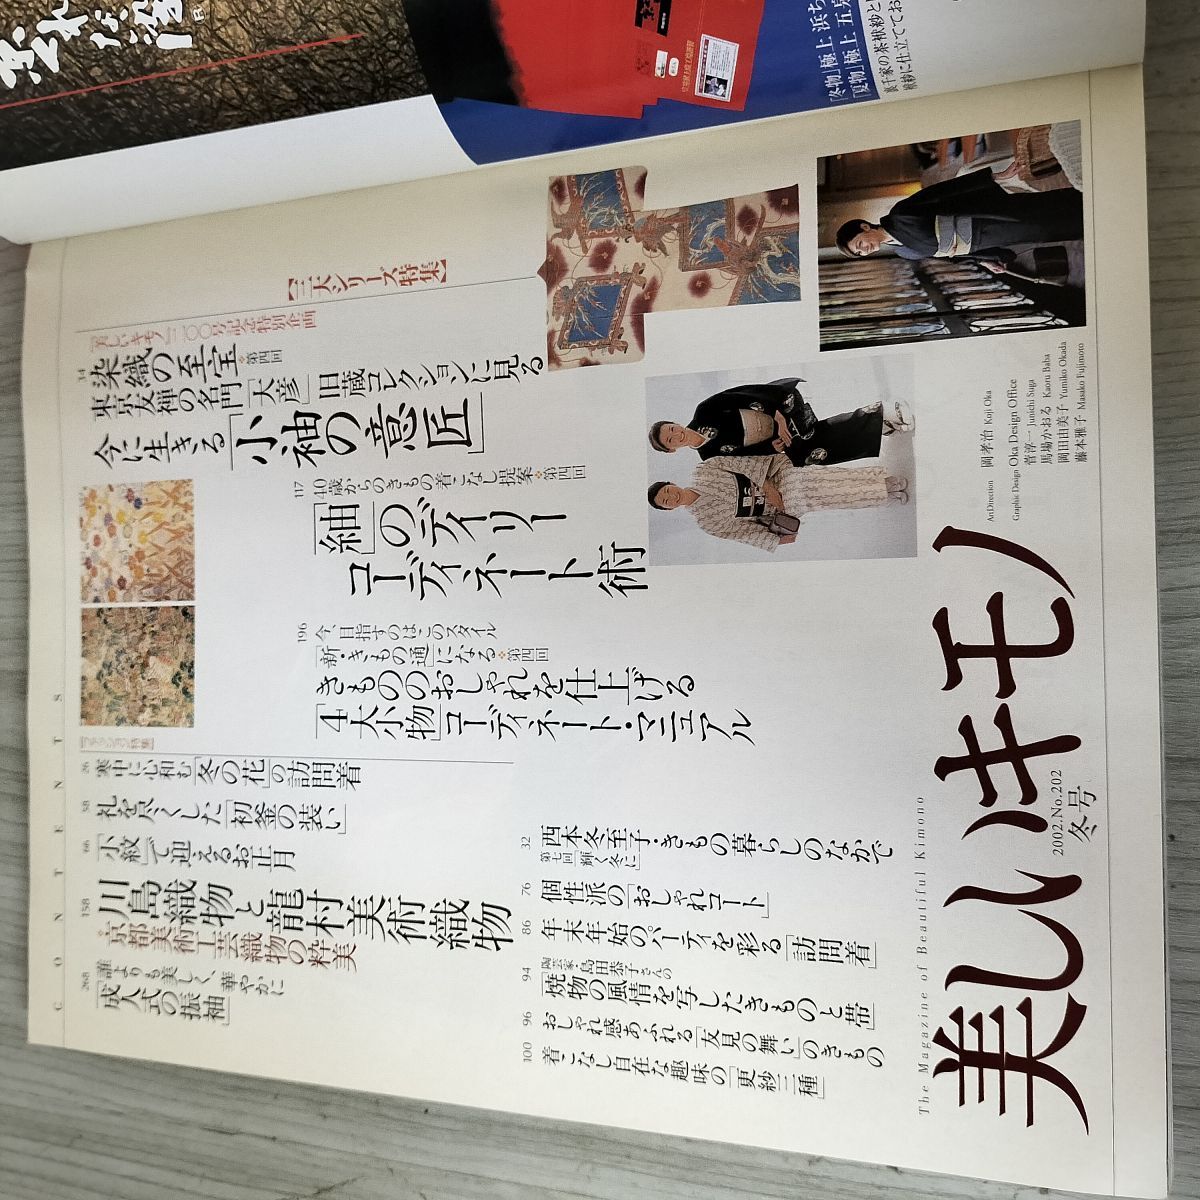 CONTENTS
【三大シリーズ特集】
「美しいキモノ」二〇〇号記念特別企画
34
染織の至宝 第四回
東京友禅の名門「大彦」旧蔵コレクションに見る
今に生きる「小袖の意匠」
117
40歳からのきもの着こなし提案 第四回
「紬」のデイリー
コーディネート術
196
今、目指すのはこのスタイル
「新・きもの通」になる 第四回
きもののおしゃれを仕上げる
「4大小物」コーディネート・マニュアル
【ファッション特集】
26
寒中に心和む「冬の花」の訪問着
58
礼を尽くした「初釜の装い」
66
「小紋」で迎えるお正月
158
川島織物と龍村美術織物
京都美術工芸織物の粋美
268
誰よりも美しく、華やかに
「成人式の振袖」
32
西本冬至子・きもの暮らしのなかで
第七回「輝く冬に」
76
個性派の「おしゃれコート」
86
年末年始のパーティを彩る「訪問着」
94
陶芸家・島田恭子さんの
「焼物の風情を写したきものと帯」
96
おしゃれ感あふれる「友見の舞い」のきもの
100
着こなし自在な趣味の「更紗三種」
ArtDirection 岡孝治 Koji Oka
Graphic Design Oka Design Office
菅淳一 Junichi Suga
馬場かおる Kaoru Baba
岡田由美子 Yumiko Okada
藤本雅子 Masako Fujimoto
The Magazine of Beautiful Kimono
美しいキモノ
2002.No.202
冬号
「冬物」極上 浜ち
「夏物」極上 五泉
裏千家の茶袱紗と
袱紗に仕立ててお